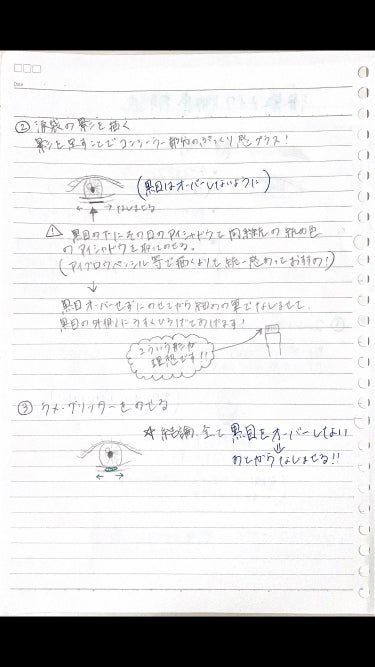 Date
② 涙袋の影を描く
影を足すことでコンシーラー部分のぷっくり感プラス！
(黒目はオーバーしないように)
← → なじませる
⚠ 黒目の下にその日のアイシャドウと同系統の締め色
のアイシャドウを取ってのせる。
(アイブロウペンシル等で描くよりも統一感あっておすすめ！)
↓
黒目オーバーせずにのせてから細めの筆でなじませて、
黒目の外側にうすくひろげてあげます！
こういう形が
理想です!!
③ ラメ・グリッターをのせる
☆ 結論、全て黒目をオーバーしない
⇓
のせてからなじませる!!
← →